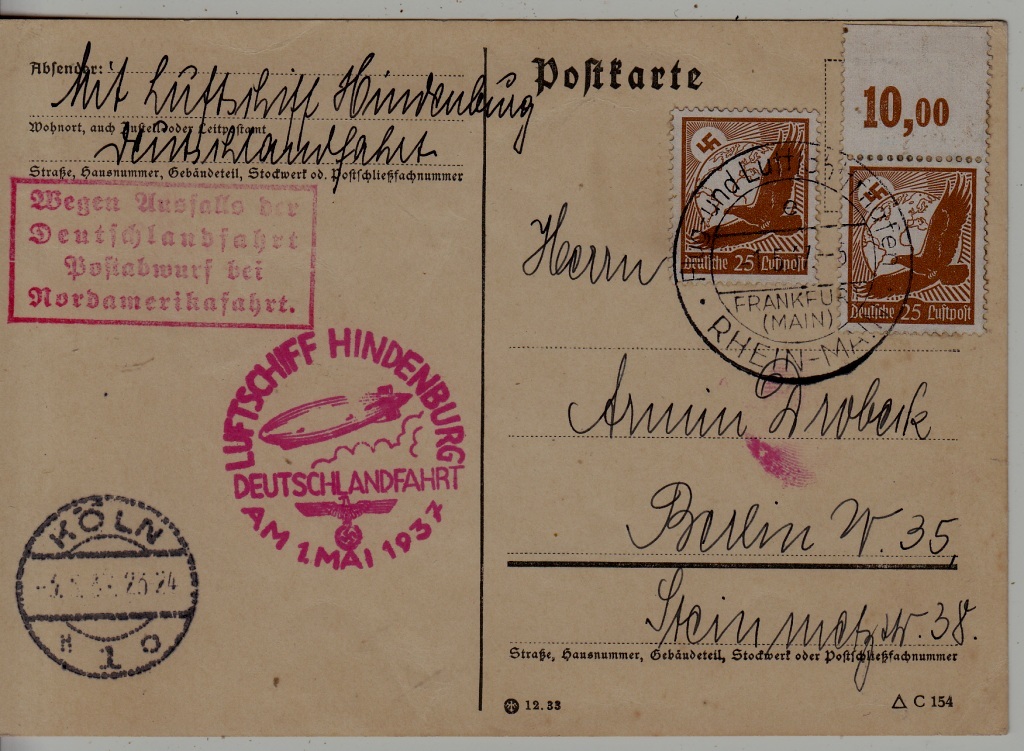 Absender:
Mit Luftschiff Hindenburg
Wohnort, auch Zustell- oder Leitpostamt
Deutschlandfahrt
Straße, Hausnummer, Gebäudeteil, Stockwerk od. Postschließfachnummer
Wegen Ausfalls der
Deutschlandfahrt
Postabwurf bei
Nordamerikafahrt.
LUFTSCHIFF HINDENBURG
DEUTSCHLANDFAHRT
AM 1. MAI 1937
KÖLN
23 24
1
Postkarte
10,00
Deutsche 25 Luftpost
Deutsche 25 Luftpost
und Luft
e
FRANKFURT
(MAIN)
RHEIN-MAIN
Herrn
Armin Drobeck
Berlin W. 35,
Steinmetzstr. 38.
Straße, Hausnummer, Gebäudeteil, Stockwerk oder Postschließfachnummer
12.33
C 154